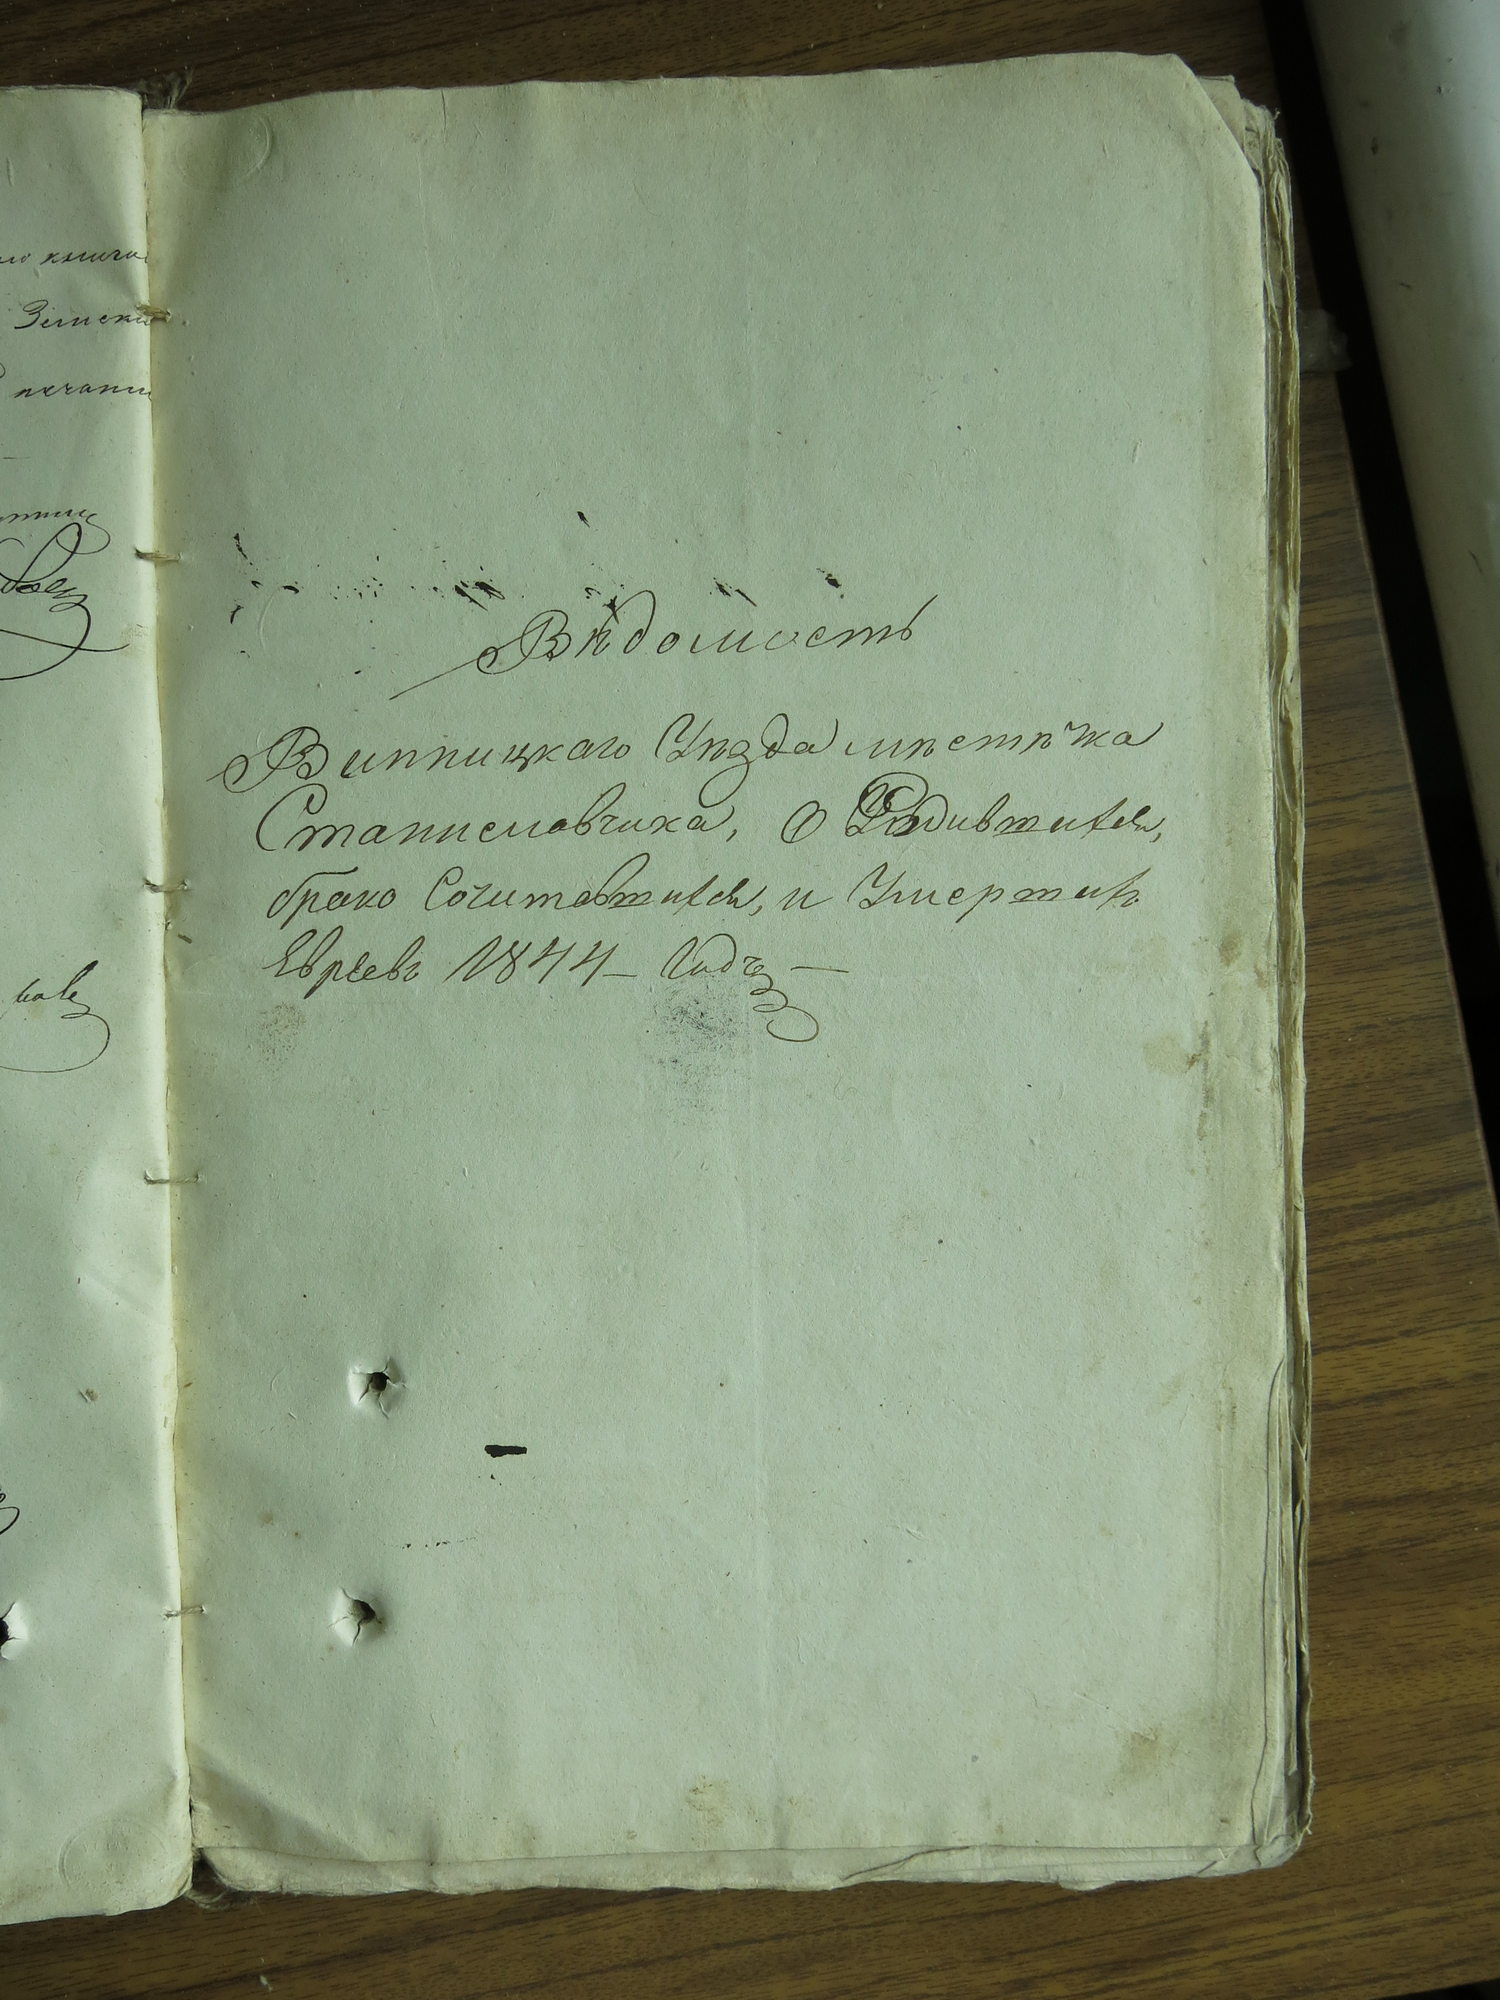 книги
Земски
печати
Вѣдомость
Винницкаго Уѣзда мѣстѣчка
Станиславчика, О Родившихся,
брако Сочитавшихся, и Умерших
Евреевъ 1844 – Годъ –